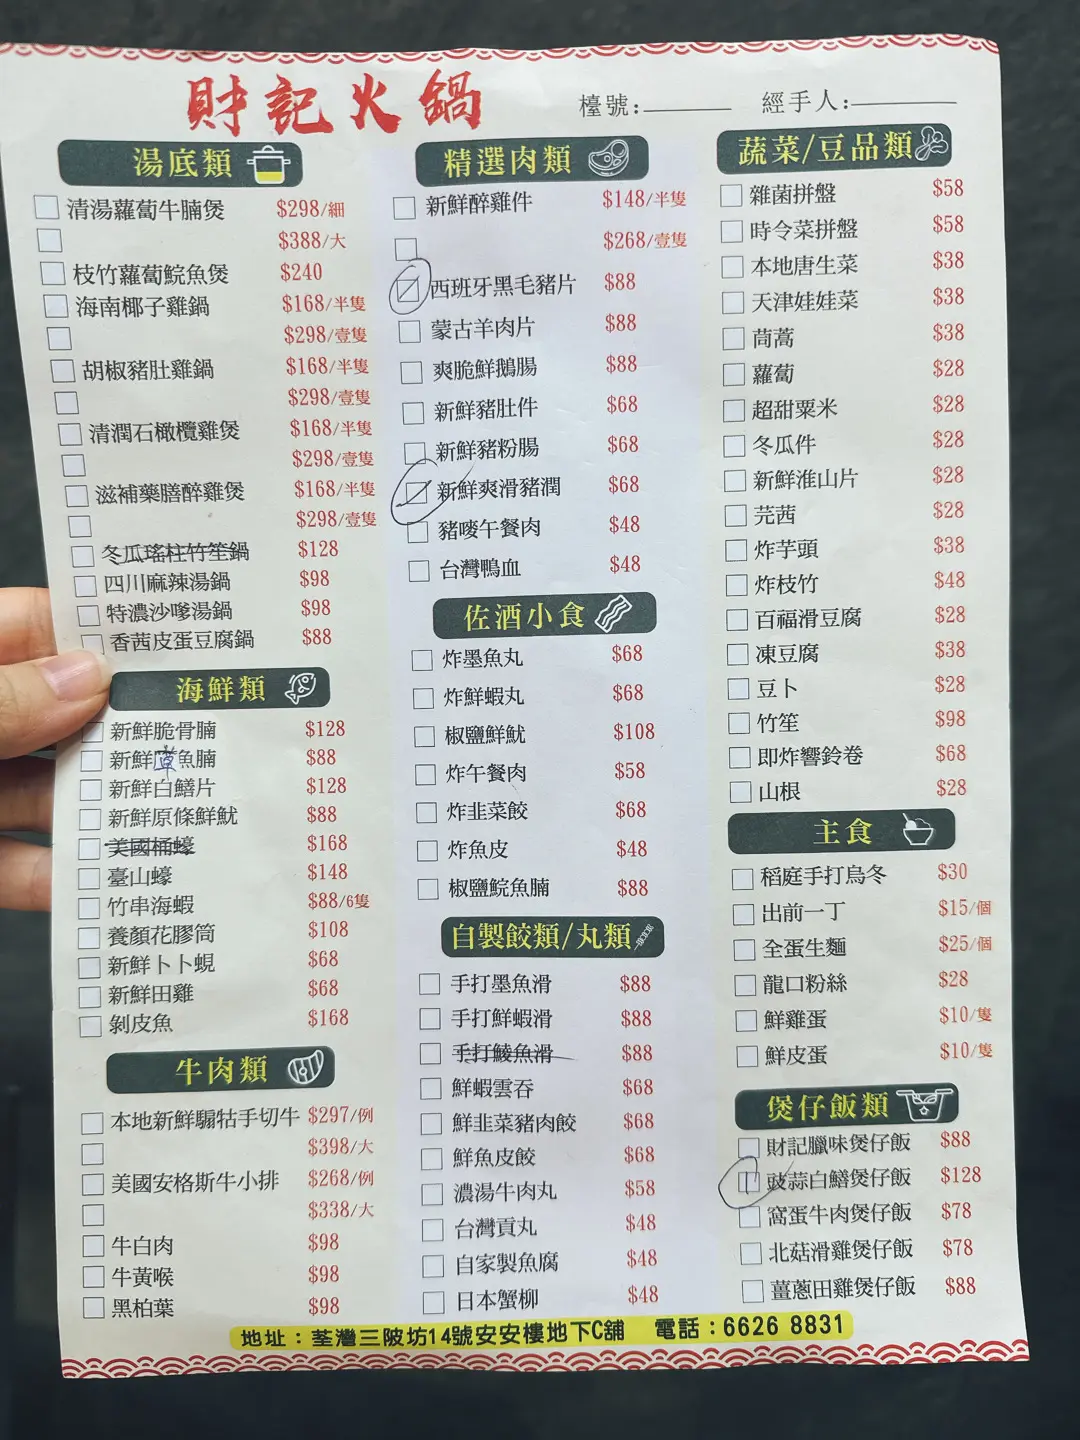 財記火鍋
檯號:
經手人:
湯底類
清湯蘿蔔牛腩煲 $298/細
$388/大
枝竹蘿蔔鯇魚煲 $240
海南椰子雞鍋 $168/半隻
$298/壹隻
胡椒豬肚雞鍋 $168/半隻
$298/壹隻
清潤石橄欖雞煲 $168/半隻
$298/壹隻
滋補藥膳醉雞煲 $168/半隻
$298/壹隻
冬瓜瑤柱竹笙鍋 $128
四川麻辣湯鍋 $98
特濃沙嗲湯鍋 $98
香茜皮蛋豆腐鍋 $88
海鮮類
新鮮脆骨腩 $128
新鮮草魚腩 $88
新鮮白鱔片 $128
新鮮原條鮮魷 $88
美國桶蠔 $168
臺山蠔 $148
竹串海蝦 $88/6隻
養顏花膠筒 $108
新鮮卜卜蜆 $68
新鮮田雞 $68
剝皮魚 $168
牛肉類
本地新鮮騸牯手切牛 $297/例
$398/大
美國安格斯牛小排 $268/例
$338/大
牛白肉 $98
牛黃喉 $98
黑柏葉 $98
精選肉類
新鮮醉雞件 $148/半隻
$268/壹隻
西班牙黑毛豬片 $88
蒙古羊肉片 $88
爽脆鮮鵝腸 $88
新鮮豬肚件 $68
新鮮豬粉腸 $68
新鮮爽滑豬潤 $68
豬嘜午餐肉 $48
台灣鴨血 $48
佐酒小食
炸墨魚丸 $68
炸鮮蝦丸 $68
椒鹽鮮魷 $108
炸午餐肉 $58
炸韭菜餃 $68
炸魚皮 $48
椒鹽鯇魚腩 $88
自製餃類/丸類
手打墨魚滑 $88
手打鮮蝦滑 $88
手打鯪魚滑 $88
鮮蝦雲吞 $68
鮮韭菜豬肉餃 $68
鮮魚皮餃 $68
濃湯牛肉丸 $58
台灣貢丸 $48
自家製魚腐 $48
日本蟹柳 $48
蔬菜/豆品類
雜菌拼盤 $58
時令菜拼盤 $58
本地唐生菜 $38
天津娃娃菜 $38
茼蒿 $38
蘿蔔 $28
超甜粟米 $28
冬瓜件 $28
新鮮淮山片 $28
芫茜 $28
炸芋頭 $38
炸枝竹 $48
百福滑豆腐 $28
凍豆腐 $38
豆卜 $28
竹笙 $98
即炸響鈴卷 $68
山根 $28
主食
稻庭手打烏冬 $30
出前一丁 $15/個
全蛋生麵 $25/個
龍口粉絲 $28
鮮雞蛋 $10/隻
鮮皮蛋 $10/隻
煲仔飯類
財記臘味煲仔飯 $88
豉蒜白鱔煲仔飯 $128
窩蛋牛肉煲仔飯 $78
北菇滑雞煲仔飯 $78
薑蔥田雞煲仔飯 $88
地址：荃灣三陂坊14號安安樓地下C舖 電話：6626 8831